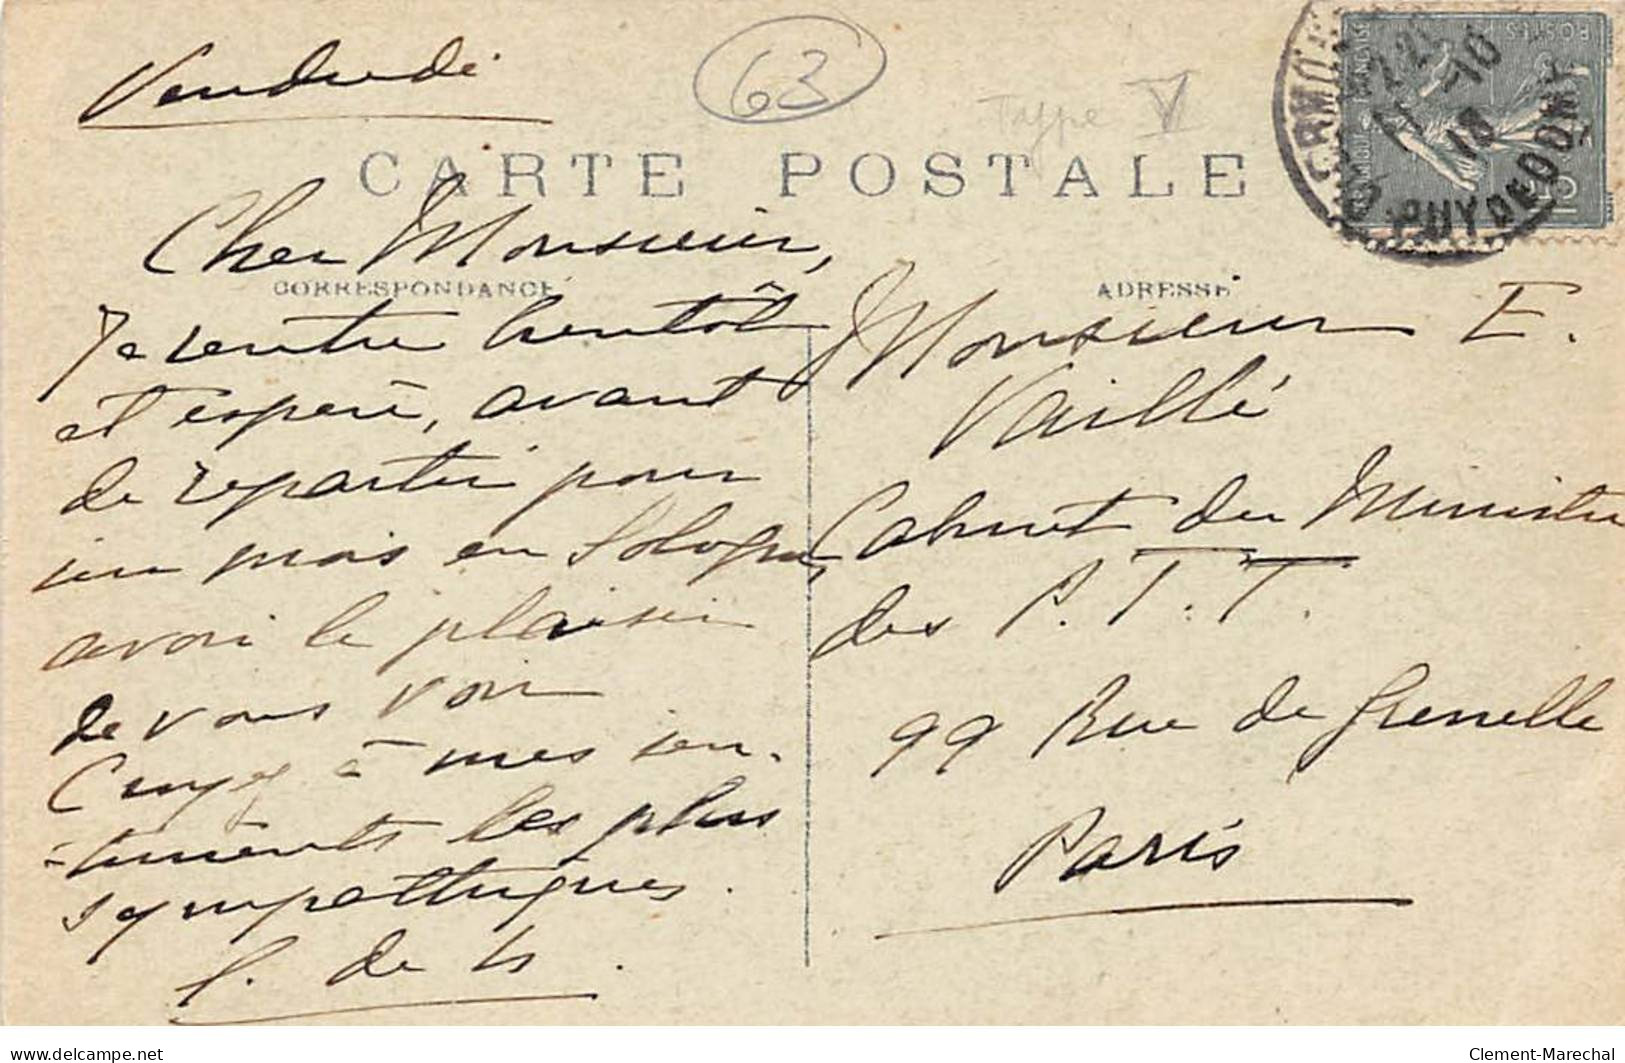 Vendredi
63
Tappe V
CARTE POSTALE
CORRESPONDANCE
Cher Monsieur,
Je rentre bientôt
et espère, avant
de repartir pour
un mois en Sologne,
avoir le plaisir
de vous voir
Croyez à mes sen-
-timents les plus
sympathiques.
de
ADRESSE
Monsieur E.
Vaillé
Cabinet du Ministre
des P.T.T.
99 Rue de Grenelle
Paris
PUY DE DOME
11 -10
18
POSTES
delcampe.net
Clement-Marechal